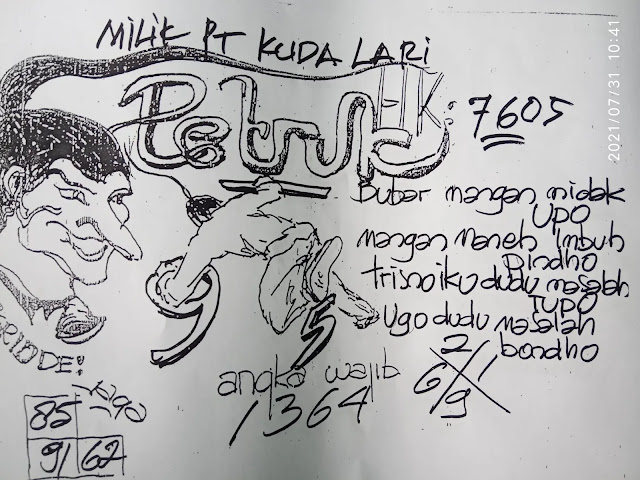 MILIK PT KUDA LARI
Petruk
HK: 7605
2021/07/31 10:41
Bubar mangan midak
UPO
mangan maneh Imbuh
Pindho
trisnoiku dudu masalah
TUPO
Ugo dudu masalah
bondho
9 5
2
6 1
9
angka wajib
1364
RIODE:
85
91 62